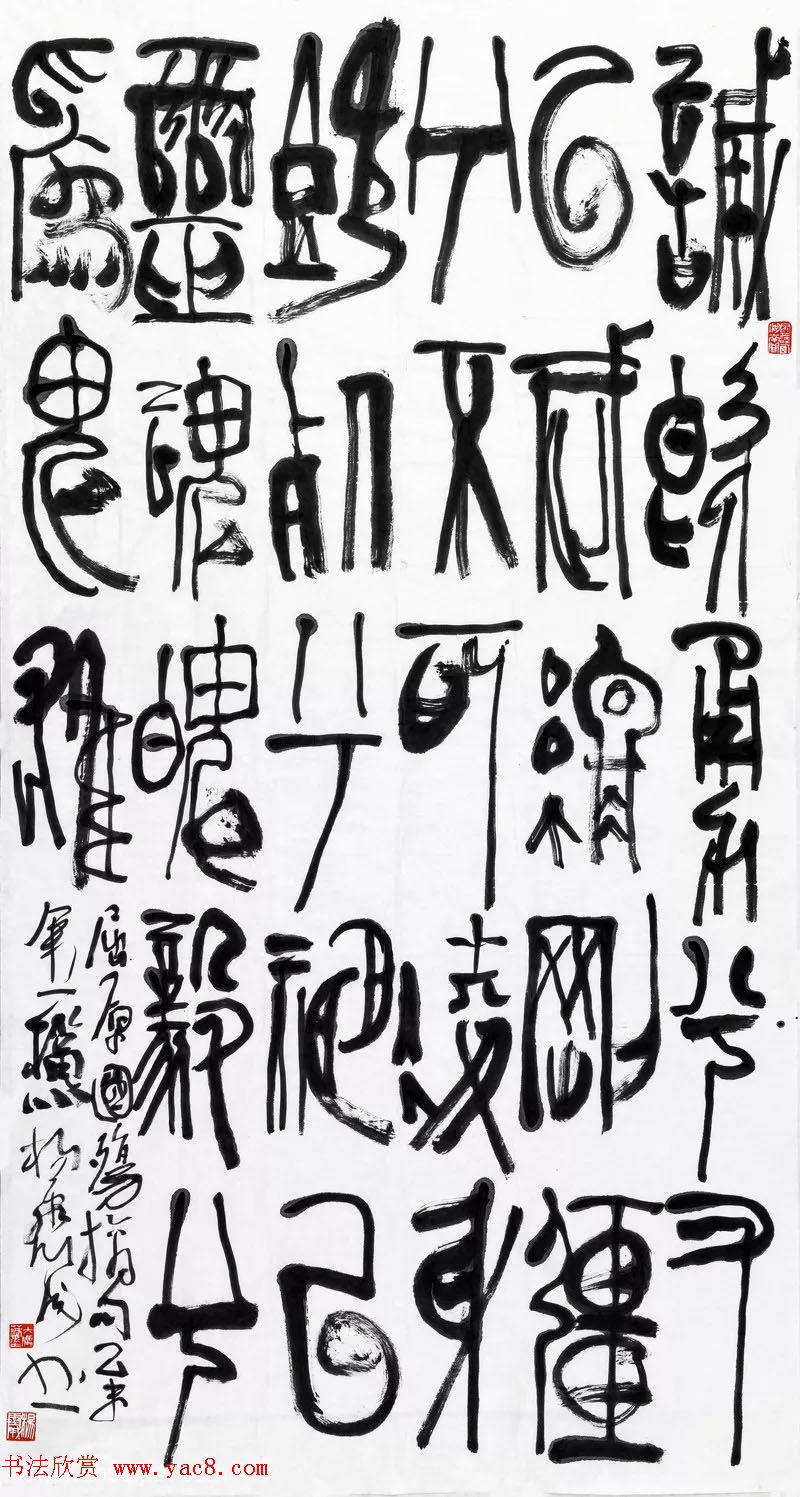 誠既勇兮又
以武終剛彊
兮不可凌身
既死兮神以
靈魂魄毅兮
為鬼雄
屈原國殤摘句乙未
书法欣赏 www.yac8.com